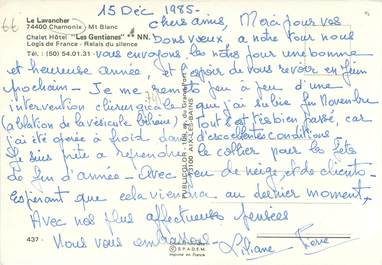 66
15 Dec 1985-
Le Lavancher
74400 Chamonix Mt Blanc
Chalet Hôtel "Les Gentianes" NN.
Logis de France - Relais du silence
Tel : (50) 54.01.31
Chers amis, Merci pour vos
bons vœux à notre tour nous
vous envoyons les nôtres pour une bonne
et heureuse année, et espoir de vous revoir en Juin
prochain - Je me remets peu à peu d'une
intervention chirurgicale que j'ai subie fin Novembre
(ablation de la vésicule biliaire) Tout s'est très bien passé, car
j'ai été opérée à froid dans d'excellentes conditions
Je suis prête à reprendre le collier pour les fêtes
de fin d'année - Avec peu de neige et de clients-
Espérant que cela viendra au dernier moment,
Avec nos plus affectueuses pensées
Nous vous embrassons - Liliane
437 -
73100 AIX-LES-BAINS
© S.P.A.D.E.M.
Imprimé en France